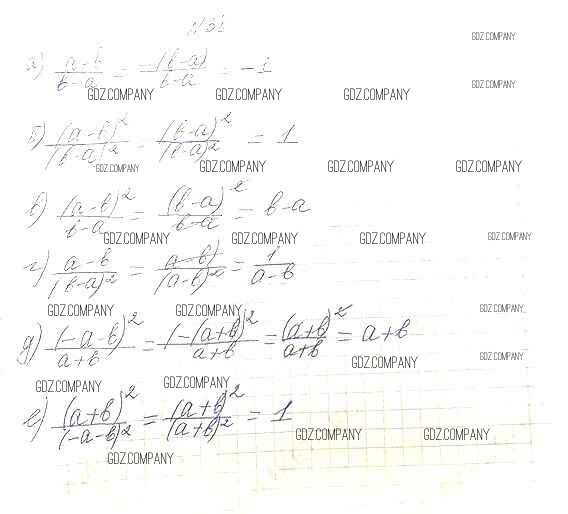 №31
GDZ.COMPANY
а) (a-b)/(b-a) = (-(b-a))/(b-a) = -1
GDZ.COMPANY
GDZ.COMPANY GDZ.COMPANY GDZ.COMPANY
б) (a-b)²/(b-a)² = (b-a)²/(b-a)² = 1
GDZ.COMPANY GDZ.COMPANY GDZ.COMPANY GDZ.COMPANY
в) (a-b)²/(b-a) = (b-a)²/(b-a) = b-a
GDZ.COMPANY GDZ.COMPANY GDZ.COMPANY GDZ.COMPANY
г) (a-b)/(b-a)² = (a-b)/(a-b)² = 1/(a-b)
GDZ.COMPANY GDZ.COMPANY GDZ.COMPANY
д) (-a-b)²/(a+b) = (-(a+b))²/(a+b) = (a+b)²/(a+b) = a+b
GDZ.COMPANY GDZ.COMPANY
GDZ.COMPANY GDZ.COMPANY
е) (a+b)²/(-a-b)² = (a+b)²/(a+b)² = 1
GDZ.COMPANY GDZ.COMPANY
GDZ.COMPANY